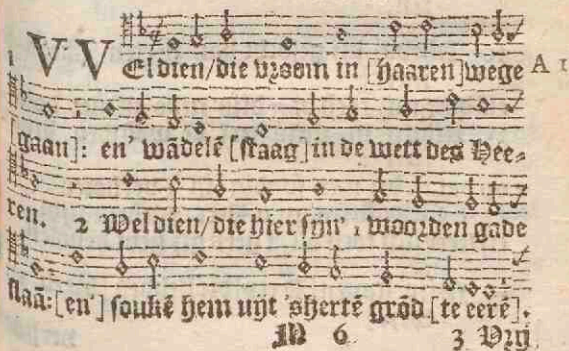 VVEl dien/die vꝛoom in [haaren] wege A 1
[gaan]: en' wādelē [staag] in de wett des Hee-
ren. 2 Wel dien/die hier sijn' , wooꝛden gade
slaā: [en'] soukē hem uyt 'shertē grōd [te eerē].
M 6 3 Vꝛij